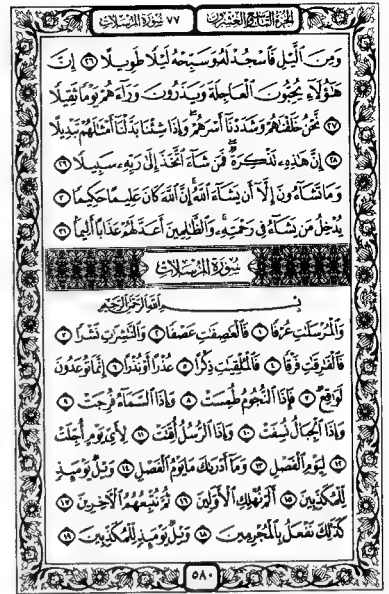 الجزء التاسع والعشرون ٧٧ سورة المرسلات
وَمِنَ ٱلَّيْلِ فَٱسْجُدْ لَهُۥ وَسَبِّحْهُ لَيْلًا طَوِيلًا ٢٦ إِنَّ
هَٰٓؤُلَآءِ يُحِبُّونَ ٱلْعَاجِلَةَ وَيَذَرُونَ وَرَآءَهُمْ يَوْمًا ثَقِيلًا
٢٧ نَّحْنُ خَلَقْنَٰهُمْ وَشَدَدْنَآ أَسْرَهُمْ ۖ وَإِذَا شِئْنَا بَدَّلْنَآ أَمْثَٰلَهُمْ تَبْدِيلًا
٢٨ إِنَّ هَٰذِهِۦ تَذْكِرَةٌ ۖ فَمَن شَآءَ ٱتَّخَذَ إِلَىٰ رَبِّهِۦ سَبِيلًا ٢٩
وَمَا تَشَآءُونَ إِلَّآ أَن يَشَآءَ ٱللَّهُ ۚ إِنَّ ٱللَّهَ كَانَ عَلِيمًا حَكِيمًا ٣٠
يُدْخِلُ مَن يَشَآءُ فِى رَحْمَتِهِۦ ۚ وَٱلظَّٰلِمِينَ أَعَدَّ لَهُمْ عَذَابًا أَلِيمًۢا ٣١
سورة المرسلات
بِسْمِ ٱللَّهِ ٱلرَّحْمَٰنِ ٱلرَّحِيمِ
وَٱلْمُرْسَلَٰتِ عُرْفًا ١ فَٱلْعَٰصِفَٰتِ عَصْفًا ٢ وَٱلنَّٰشِرَٰتِ نَشْرًا ٣
فَٱلْفَٰرِقَٰتِ فَرْقًا ٤ فَٱلْمُلْقِيَٰتِ ذِكْرًا ٥ عُذْرًا أَوْ نُذْرًا ٦ إِنَّمَا تُوعَدُونَ
لَوَٰقِعٌ ٧ فَإِذَا ٱلنُّجُومُ طُمِسَتْ ٨ وَإِذَا ٱلسَّمَآءُ فُرِجَتْ ٩
وَإِذَا ٱلْجِبَالُ نُسِفَتْ ١٠ وَإِذَا ٱلرُّسُلُ أُقِّتَتْ ١١ لِأَىِّ يَوْمٍ أُجِّلَتْ
١٢ لِيَوْمِ ٱلْفَصْلِ ١٣ وَمَآ أَدْرَىٰكَ مَا يَوْمُ ٱلْفَصْلِ ١٤ وَيْلٌ يَوْمَئِذٍ
لِّلْمُكَذِّبِينَ ١٥ أَلَمْ نُهْلِكِ ٱلْأَوَّلِينَ ١٦ ثُمَّ نُتْبِعُهُمُ ٱلْءَاخِرِينَ ١٧
كَذَٰلِكَ نَفْعَلُ بِٱلْمُجْرِمِينَ ١٨ وَيْلٌ يَوْمَئِذٍ لِّلْمُكَذِّبِينَ ١٩
٥٨٠